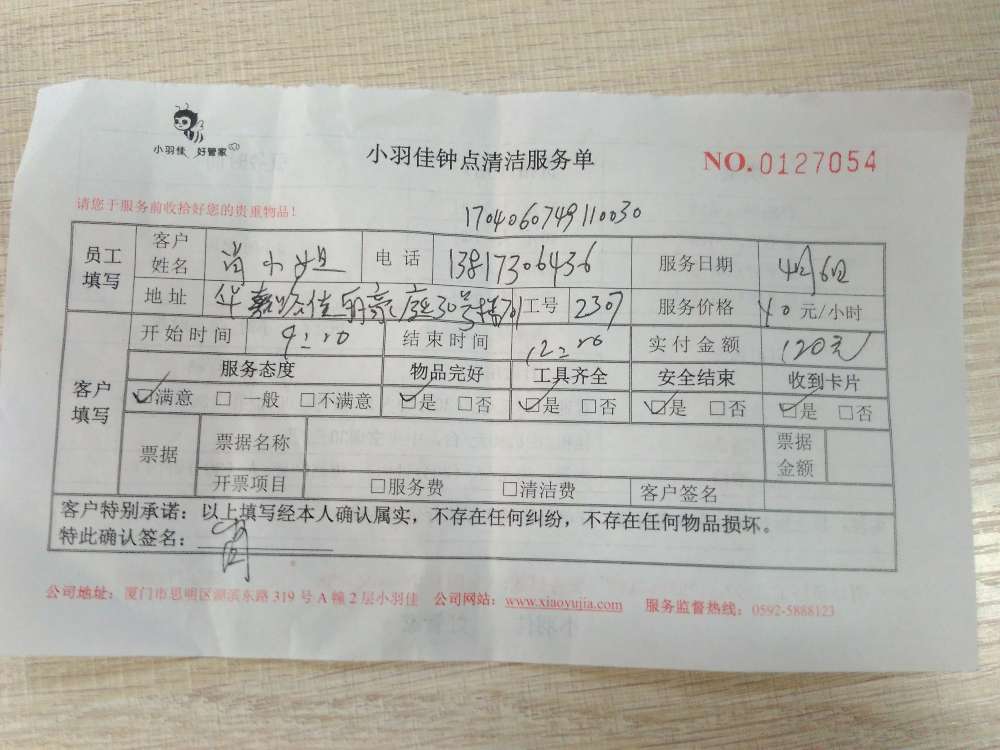 小羽佳 好管家
小羽佳钟点清洁服务单
NO.0127054
请您于服务前收拾好您的贵重物品!
1704060749110030
员工填写 客户姓名 肖小姐 电话 13817306436 服务日期 4月6日
地址 30号楼 工号 2307 服务价格 40 元/小时
客户填写 开始时间 9:00 结束时间 12:00 实付金额 120元
服务态度 物品完好 工具齐全 安全结束 收到卡片
☑满意 □一般 □不满意 ☑是 □否 ☑是 □否 ☑是 □否 ☑是 □否
票据 票据名称 票据金额
开票项目 □服务费 □清洁费 客户签名
客户特别承诺：以上填写经本人确认属实，不存在任何纠纷，不存在任何物品损坏。
特此确认签名： 肖
公司地址：厦门市思明区湖滨东路 319 号 A 幢 2 层小羽佳 公司网站：www.xiaoyujia.com 服务监督热线：0592-5888123